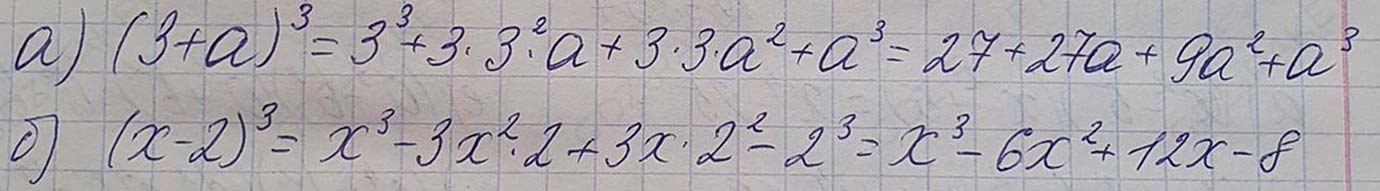 а) (3+a)³ = 3³+3·3²·a+3·3·a²+a³ = 27+27a+9a²+a³
б) (x-2)³ = x³-3x²·2+3x·2²-2³ = x³-6x²+12x-8